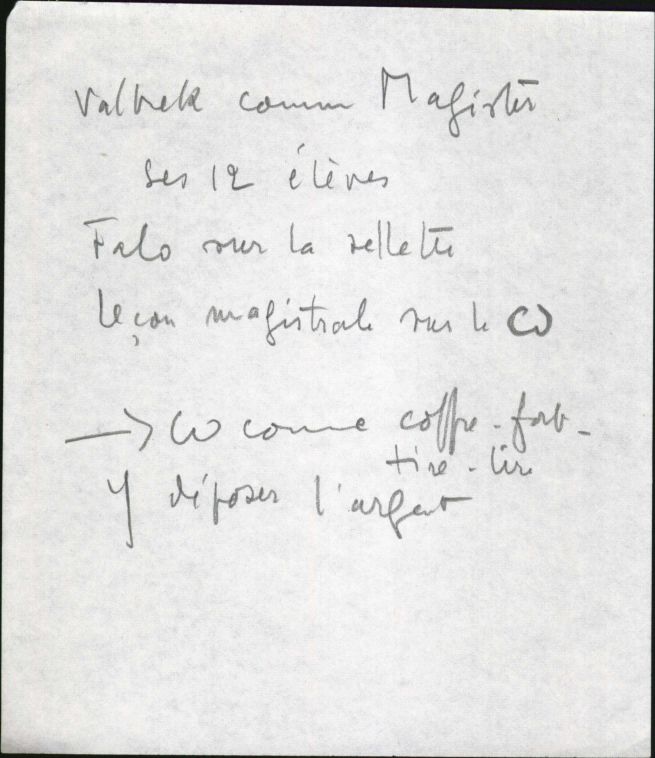 Valbrek comm Magister
ses 12 élèves
Falo sur la sellette
leçon magistrale sur le ω
→ ω comme coffre-fort-
tire-lire
y déposer l'argent